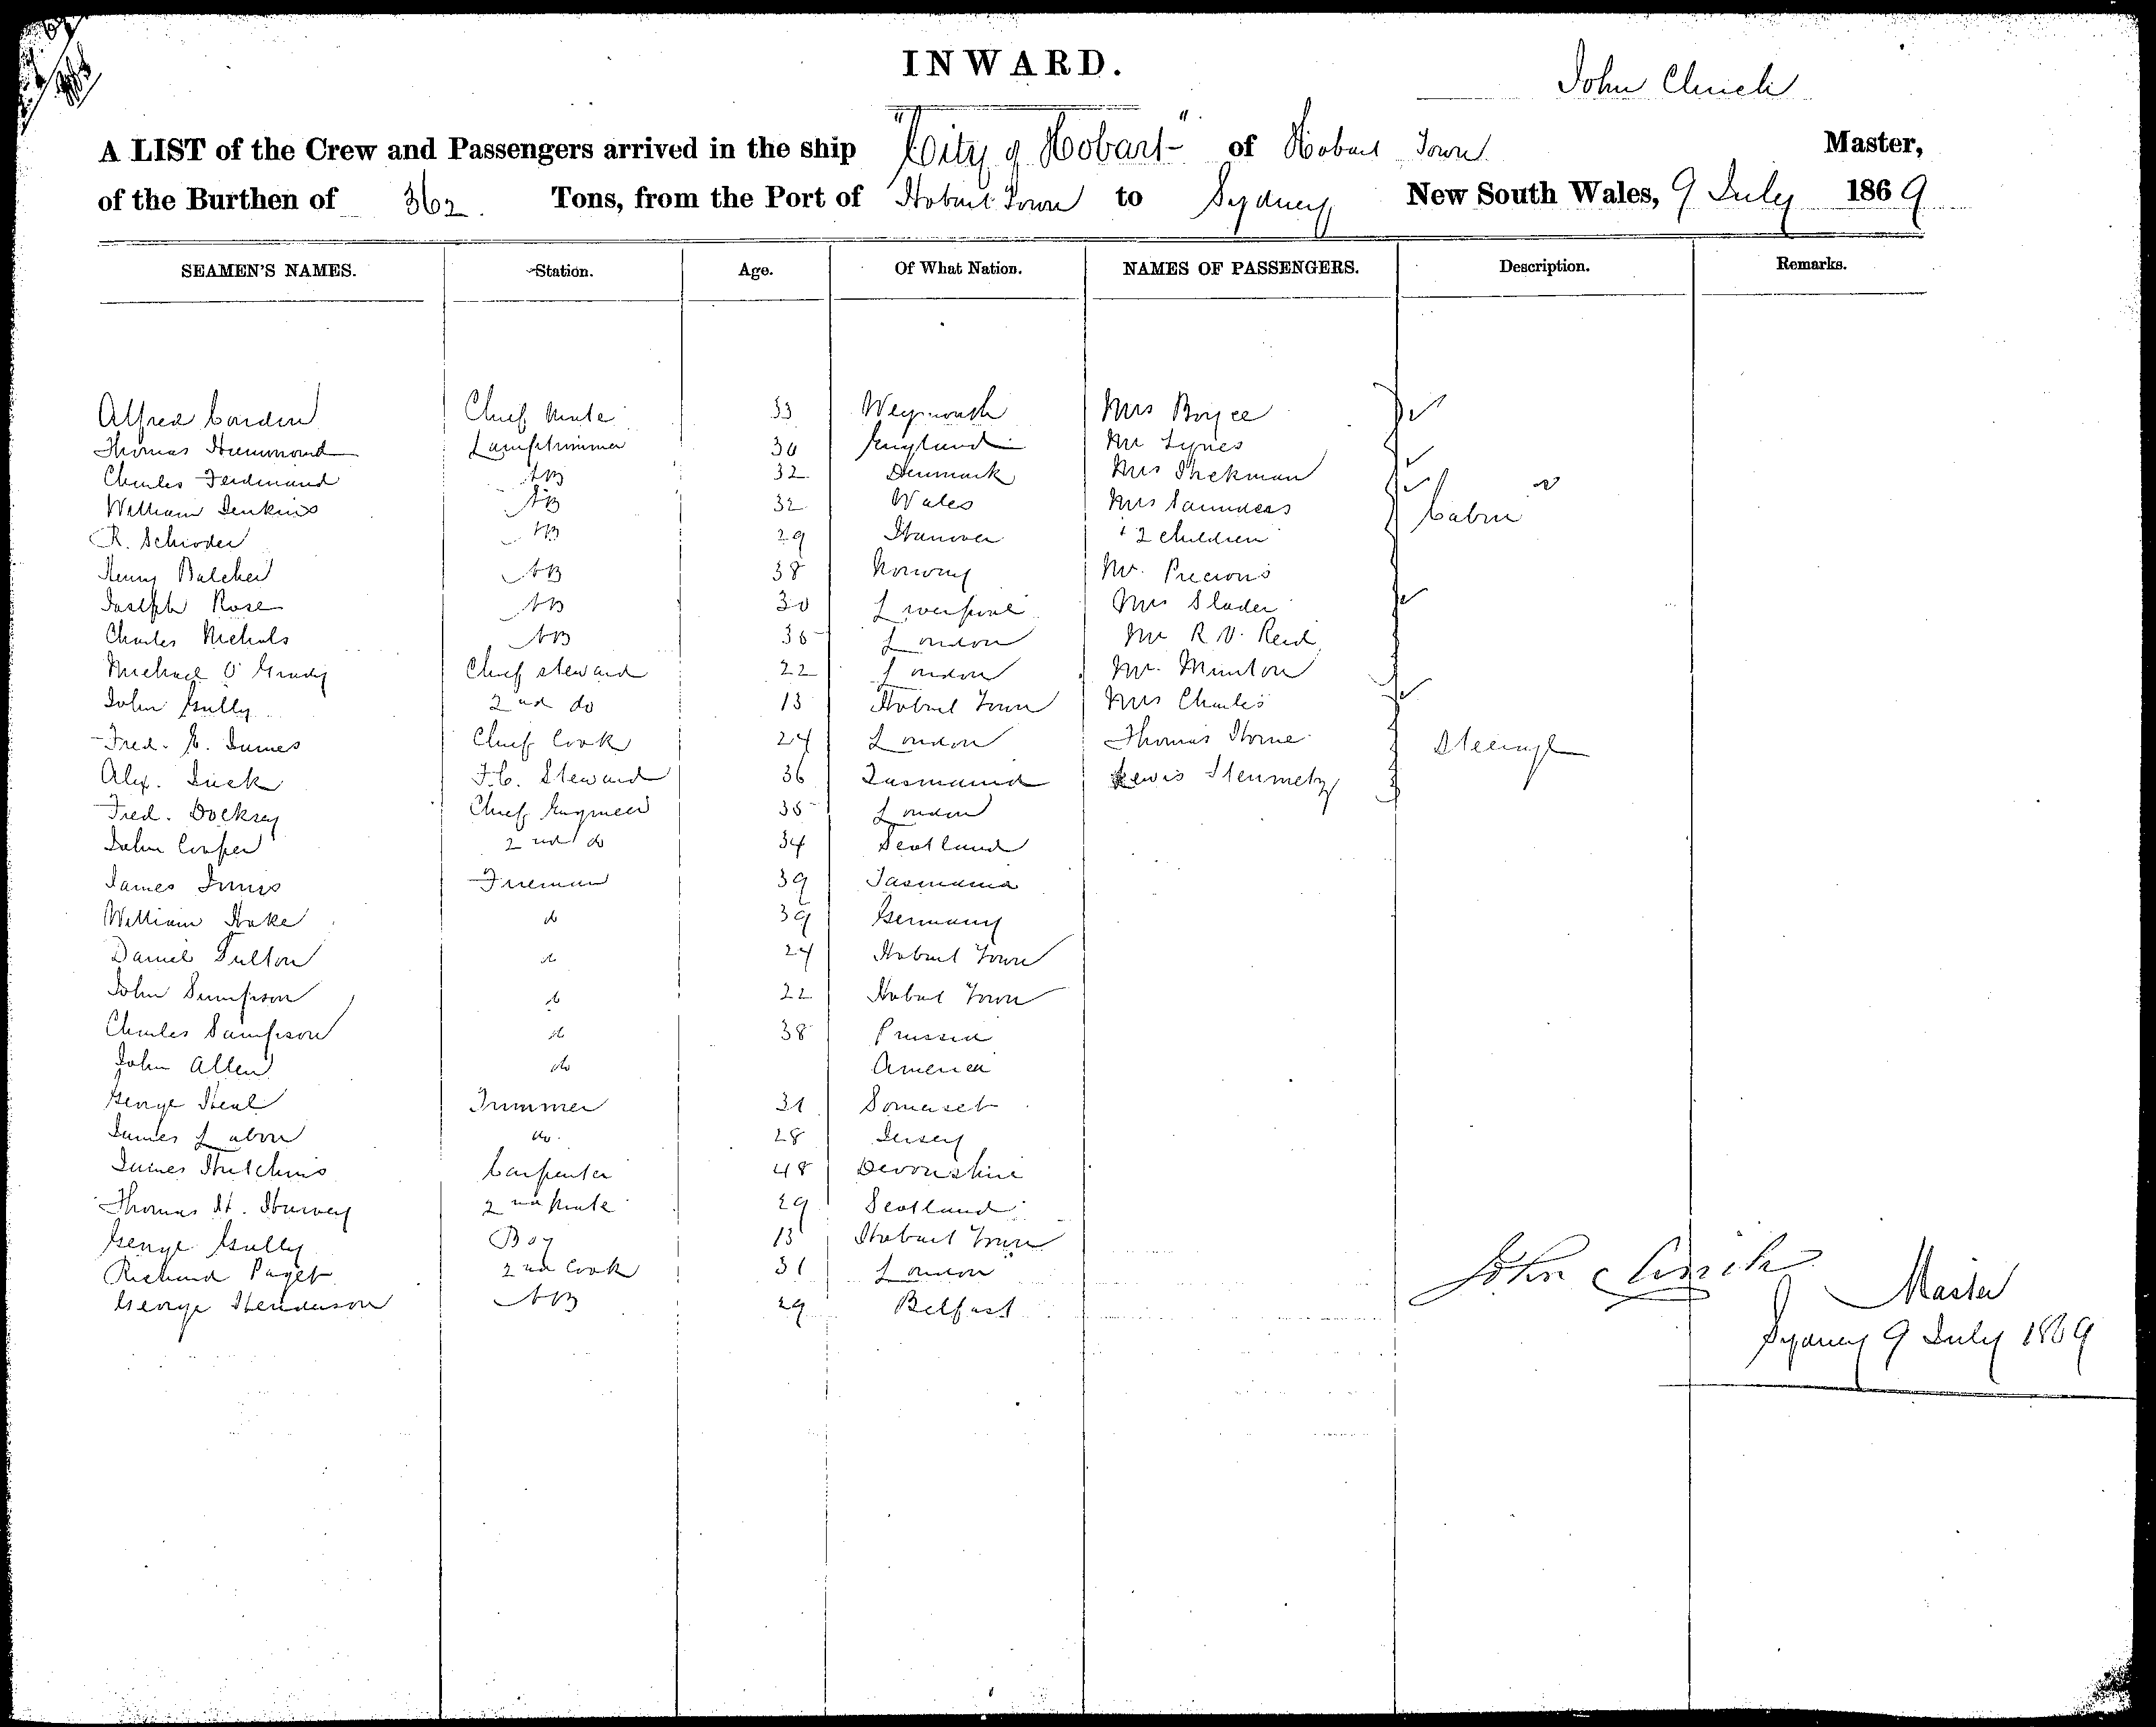 INWARD.
John Clinch
A LIST of the Crew and Passengers arrived in the ship "City of Hobart" of Hobart Town Master,
of the Burthen of 362 Tons, from the Port of Hobart Town to Sydney New South Wales, 9 July 1869
SEAMEN'S NAMES. Station. Age. Of What Nation. NAMES OF PASSENGERS. Description. Remarks.
Alfred Chief Mate 33 Weymouth Mrs Boyce
Thomas Drummond Lamptrimmer 30 England Mr Lynes
Charles Ferdinand AB 32 Denmark Mrs
William Jenkins AB 32 Wales Mrs Saunders Cabin
R. Schroder AB 29 Hanover 2 Children
Henry Balcher AB 38 Norway Mr. Precious
Joseph Rose AB 30 Liverpool Mrs Slader
Charles Nichols AB London Mr R V. Reid
Michael O'Grady Chief Steward 22 London Mr. Munton
John Gully 2nd do 13 Hobart Town Mrs Charles
Fred. E. James Chief Cook 24 London Thomas Horne Steerage
Alex. Duck F.C. Steward 36 Tasmania Lewis Stenmetz
Fred. Docksey Chief Engineer 35 London
John Cooper 2nd do 34 Scotland
James Innis Fireman 39 Tasmania
William Hake do 39 Germany
Daniel Fulton do 24 Hobart Town
John Sampson do 22 Hobart Town
Charles Sampson do 38 Prussia
John Allen do America
George Heal Trimmer 31 Somerset
James Labon do. 28 Jersey
James Hutchins Carpenter 48 Devonshire
Thomas H. Harvey 2nd Mate 29 Scotland
George Gully Boy 13 Hobart Town
Richard Paget 2nd Cook 31 London
George Henderson AB 29 Belfast
John Clinch
Master
Sydney 9 July 1869